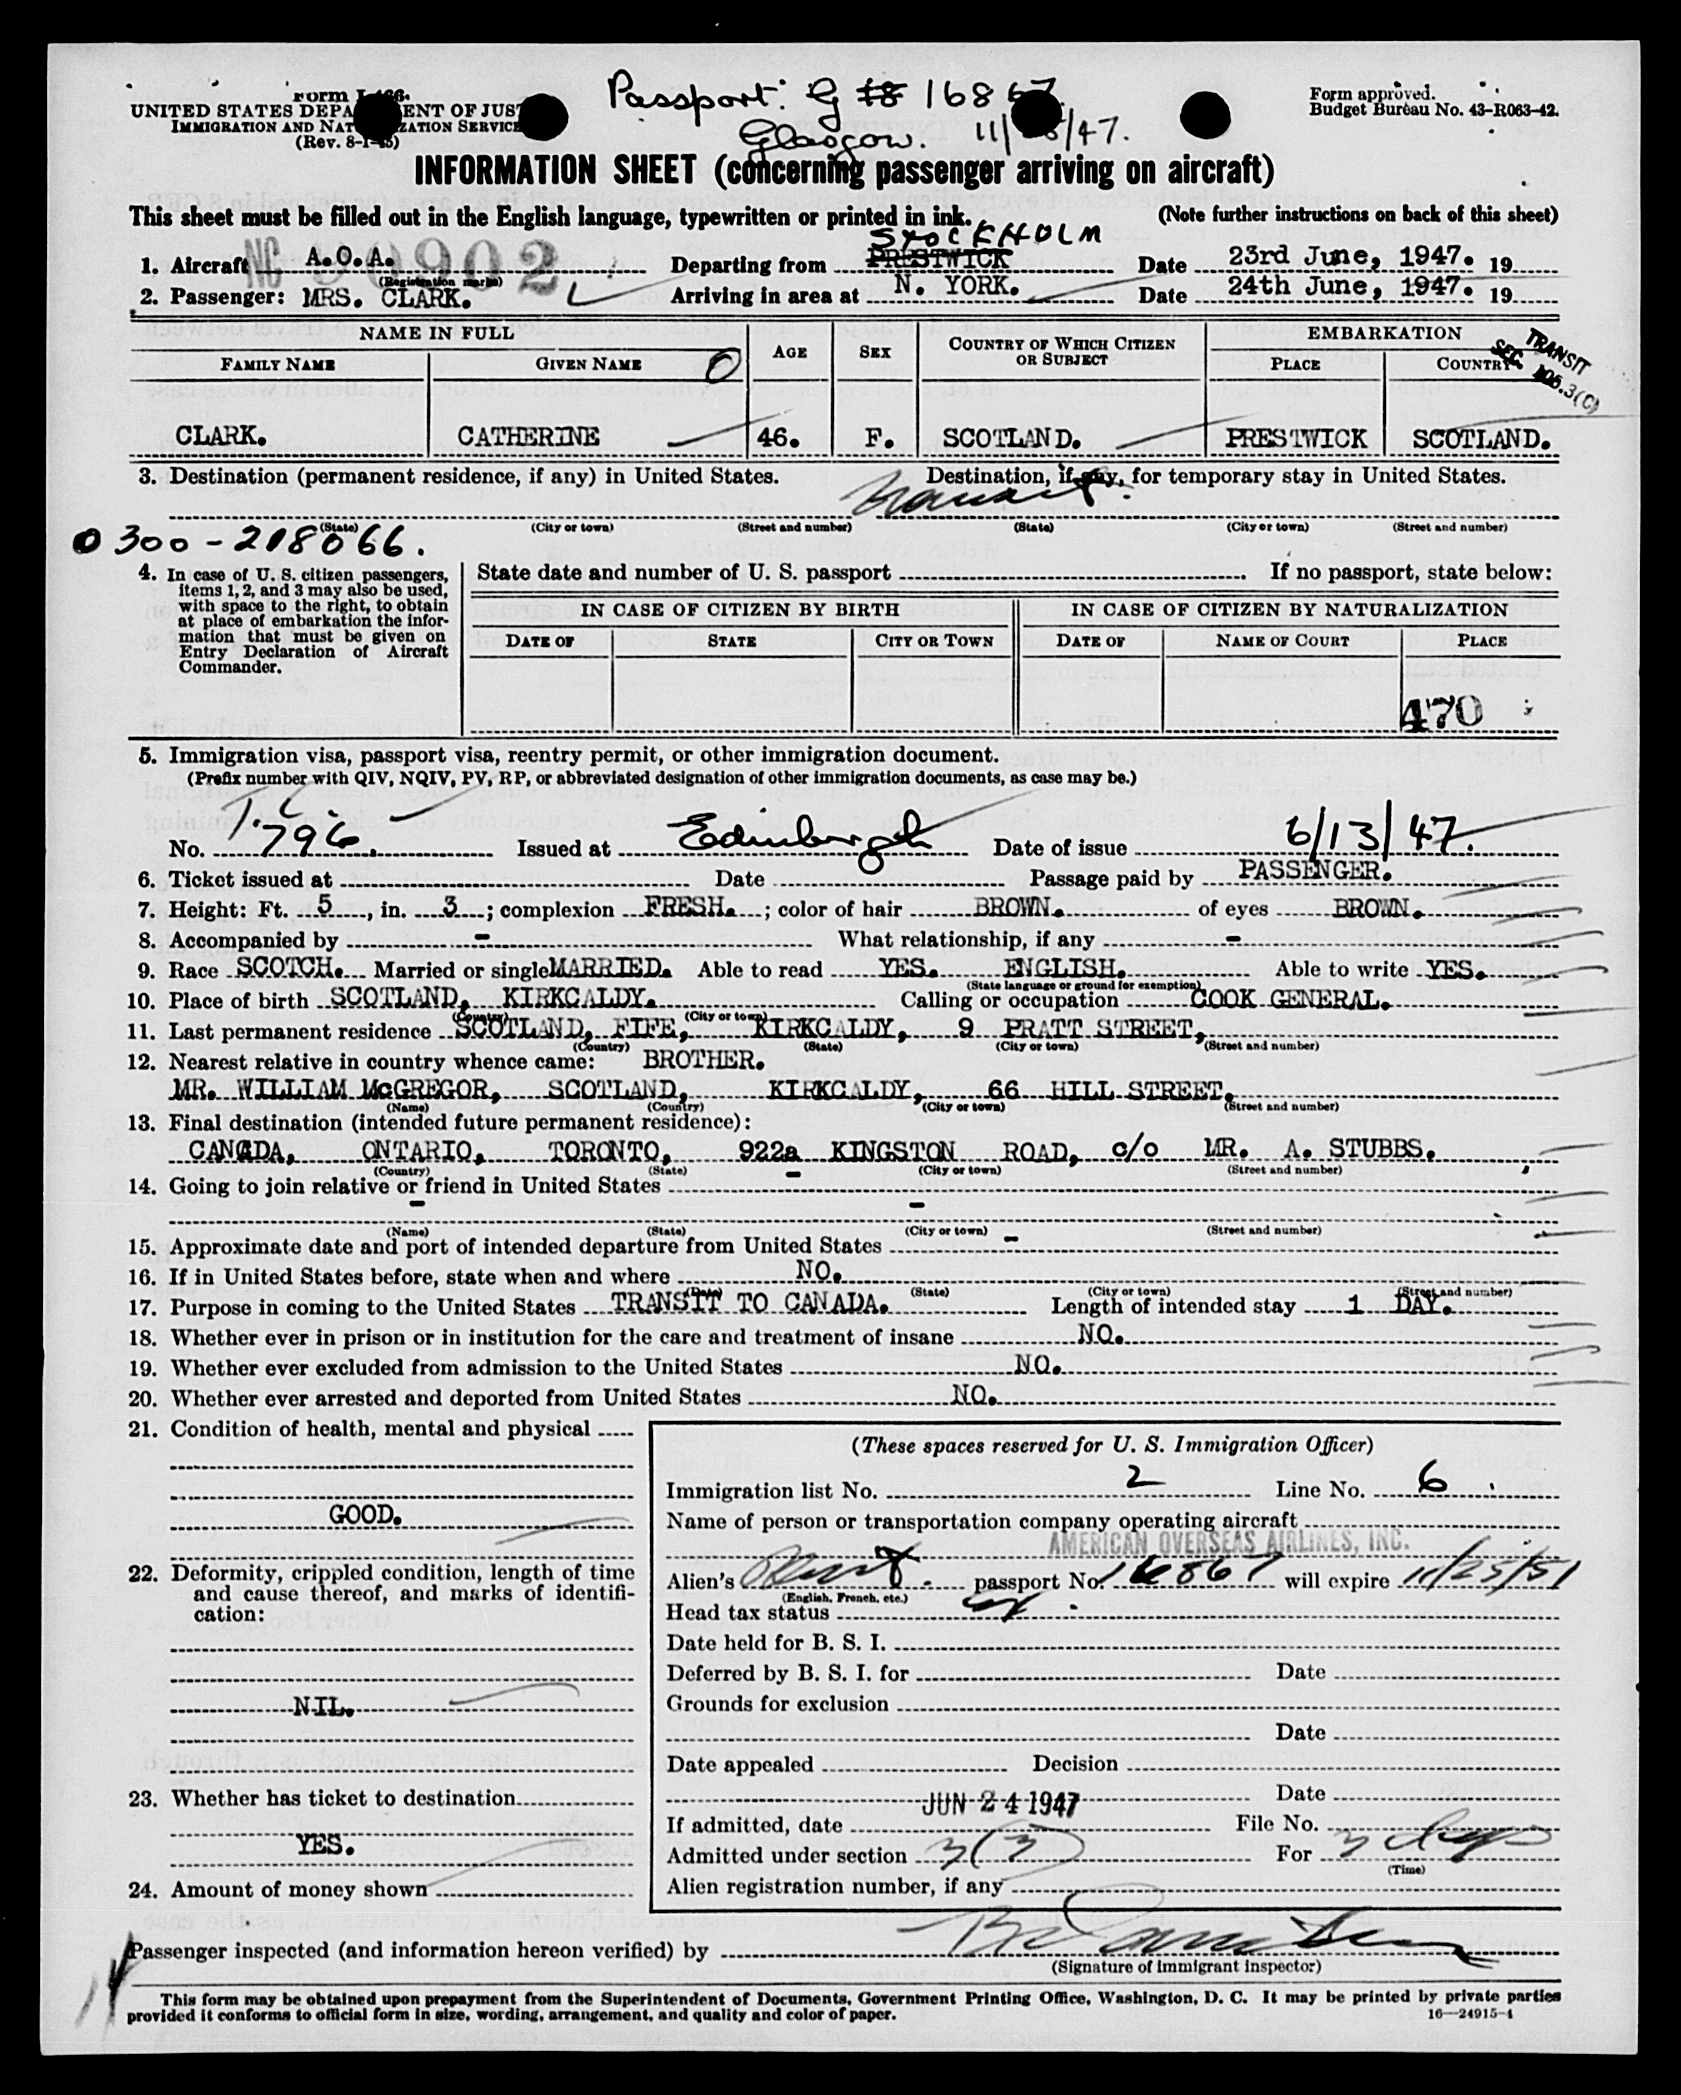 Form I-466
UNITED STATES DEPA ENT OF JUS
IMMIGRATION AND NAT ZATION SERVICE
(Rev. 8-1-45)
Passport: G 16867.
Glasgow. 11/ /47.
Form approved.
Budget Bureau No. 43-R063-42.
INFORMATION SHEET (concerning passenger arriving on aircraft)
This sheet must be filled out in the English language, typewritten or printed in ink.
(Note further instructions on back of this sheet)
NC 90902
STOCKHOLM
1. Aircraft A.O.A. Departing from PRESTWICK Date 23rd June, 1947. 19
(Registration marks)
2. Passenger: MRS. CLARK. Arriving in area at N. YORK. Date 24th June, 1947. 19
NAME IN FULL AGE SEX COUNTRY OF WHICH CITIZEN OR SUBJECT EMBARKATION
FAMILY NAME GIVEN NAME O PLACE COUNTRY
TRANSIT
SEC. 106.3(C)
CLARK. CATHERINE 46. F. SCOTLAND. PRESTWICK SCOTLAND.
3. Destination (permanent residence, if any) in United States. Destination, if any, for temporary stay in United States.
Transit.
(State) (City or town) (Street and number) (State) (City or town) (Street and number)
0300-218066.
4. In case of U. S. citizen passengers,
items 1, 2, and 3 may also be used,
with space to the right, to obtain
at place of embarkation the infor-
mation that must be given on
Entry Declaration of Aircraft
Commander.
State date and number of U. S. passport . If no passport, state below:
IN CASE OF CITIZEN BY BIRTH IN CASE OF CITIZEN BY NATURALIZATION
DATE OF STATE CITY OR TOWN DATE OF NAME OF COURT PLACE
470
5. Immigration visa, passport visa, reentry permit, or other immigration document.
(Prefix number with QIV, NQIV, PV, RP, or abbreviated designation of other immigration documents, as case may be.)
T.C.
No. 796. Issued at Edinburgh Date of issue 6/13/47.
6. Ticket issued at Date Passage paid by PASSENGER.
7. Height: Ft. 5, in. 3; complexion FRESH.; color of hair BROWN. of eyes BROWN.
8. Accompanied by - What relationship, if any -
9. Race SCOTCH. Married or single MARRIED. Able to read YES. ENGLISH. Able to write YES.
(State language or ground for exemption)
10. Place of birth SCOTLAND, KIRKCALDY. Calling or occupation COOK GENERAL.
(Country) (City or town)
11. Last permanent residence SCOTLAND, FIFE, KIRKCALDY, 9 PRATT STREET,
(Country) (State) (City or town) (Street and number)
12. Nearest relative in country whence came: BROTHER.
MR. WILLIAM McGREGOR, SCOTLAND, KIRKCALDY, 66 HILL STREET.
(Name) (Country) (City or town) (Street and number)
13. Final destination (intended future permanent residence):
CANADA, ONTARIO, TORONTO, 922a KINGSTON ROAD, c/o MR. A. STUBBS.
(Country) (State) (City or town) (Street and number)
14. Going to join relative or friend in United States -
- -
(Name) (State) (City or town) (Street and number)
15. Approximate date and port of intended departure from United States -
16. If in United States before, state when and where NO.
(Date) (State) (City or town) (Street and number)
17. Purpose in coming to the United States TRANSIT TO CANADA. Length of intended stay 1 DAY.
18. Whether ever in prison or in institution for the care and treatment of insane NO.
19. Whether ever excluded from admission to the United States NO.
20. Whether ever arrested and deported from United States NO.
21. Condition of health, mental and physical
GOOD.
22. Deformity, crippled condition, length of time
and cause thereof, and marks of identifi-
cation:
NIL.
23. Whether has ticket to destination
YES.
24. Amount of money shown
(These spaces reserved for U. S. Immigration Officer)
Immigration list No. 2 Line No. 6
Name of person or transportation company operating aircraft
AMERICAN OVERSEAS AIRLINES, INC.
Alien's passport No. 16867 will expire 11/25/51
(English, French, etc.)
Head tax status
Date held for B. S. I.
Deferred by B. S. I. for Date
Grounds for exclusion
Date
Date appealed Decision
Date
JUN 24 1947
If admitted, date File No.
Admitted under section 3(3) For 3 days
(Time)
Alien registration number, if any
Passenger inspected (and information hereon verified) by
(Signature of immigrant inspector)
This form may be obtained upon prepayment from the Superintendent of Documents, Government Printing Office, Washington, D. C. It may be printed by private parties
provided it conforms to official form in size, wording, arrangement, and quality and color of paper.
16—24915-1